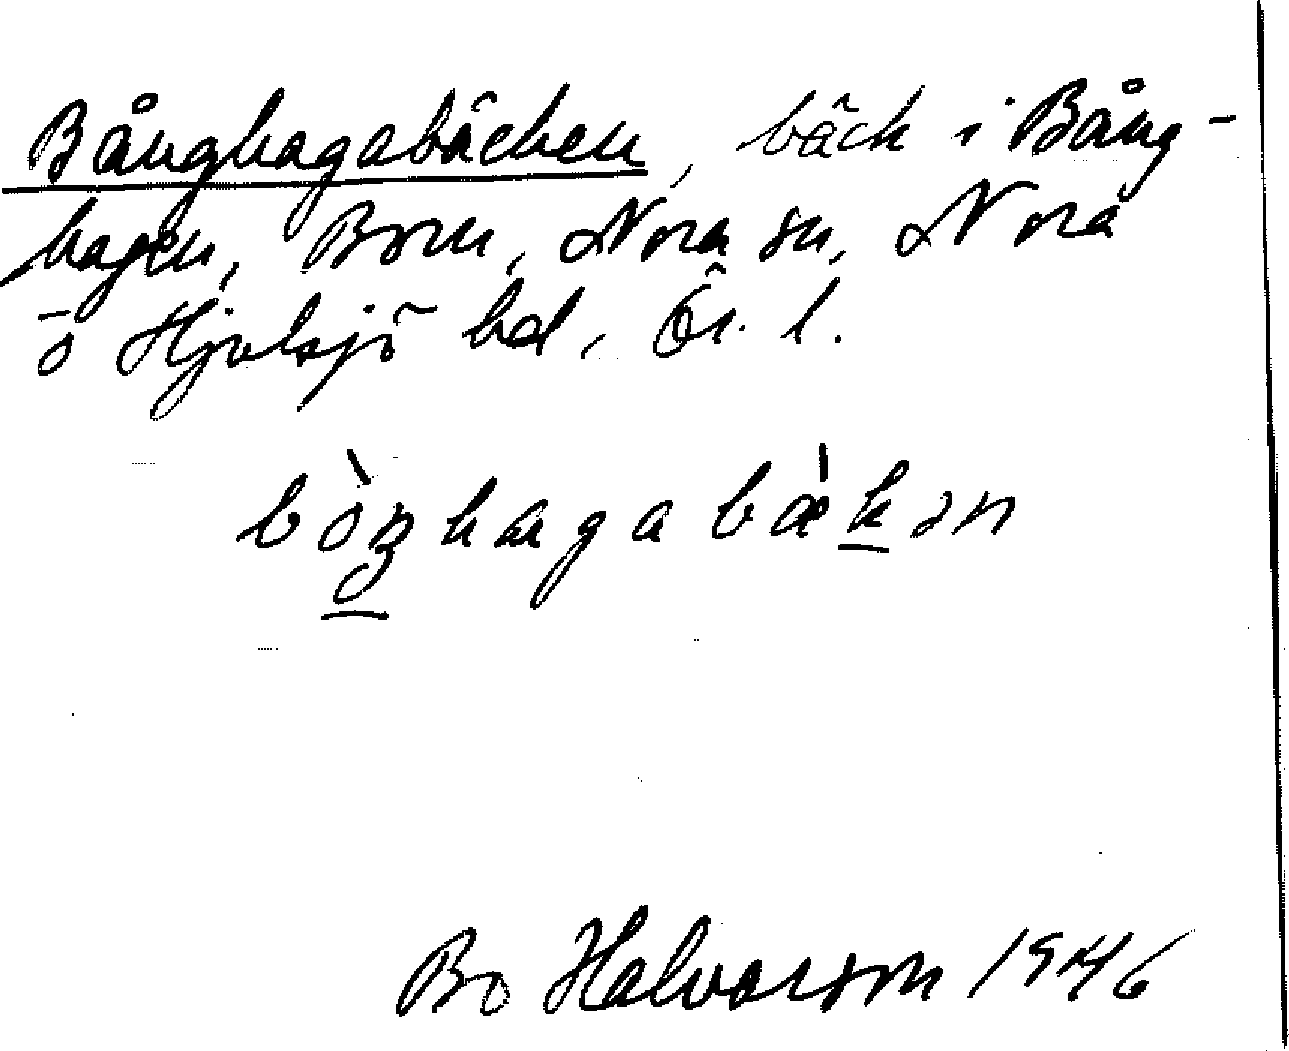 Bånghagabäcken, bäck i Bång-
hagen, Born, Nora sn, Nora
o Hjulsjö hd, Ör. l.
bòŋhagabækən
Bo Halvarson 1946